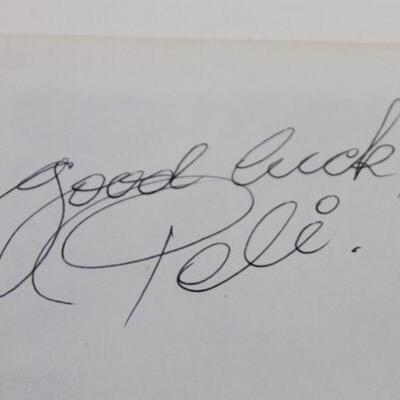 good luck,
Pelé.